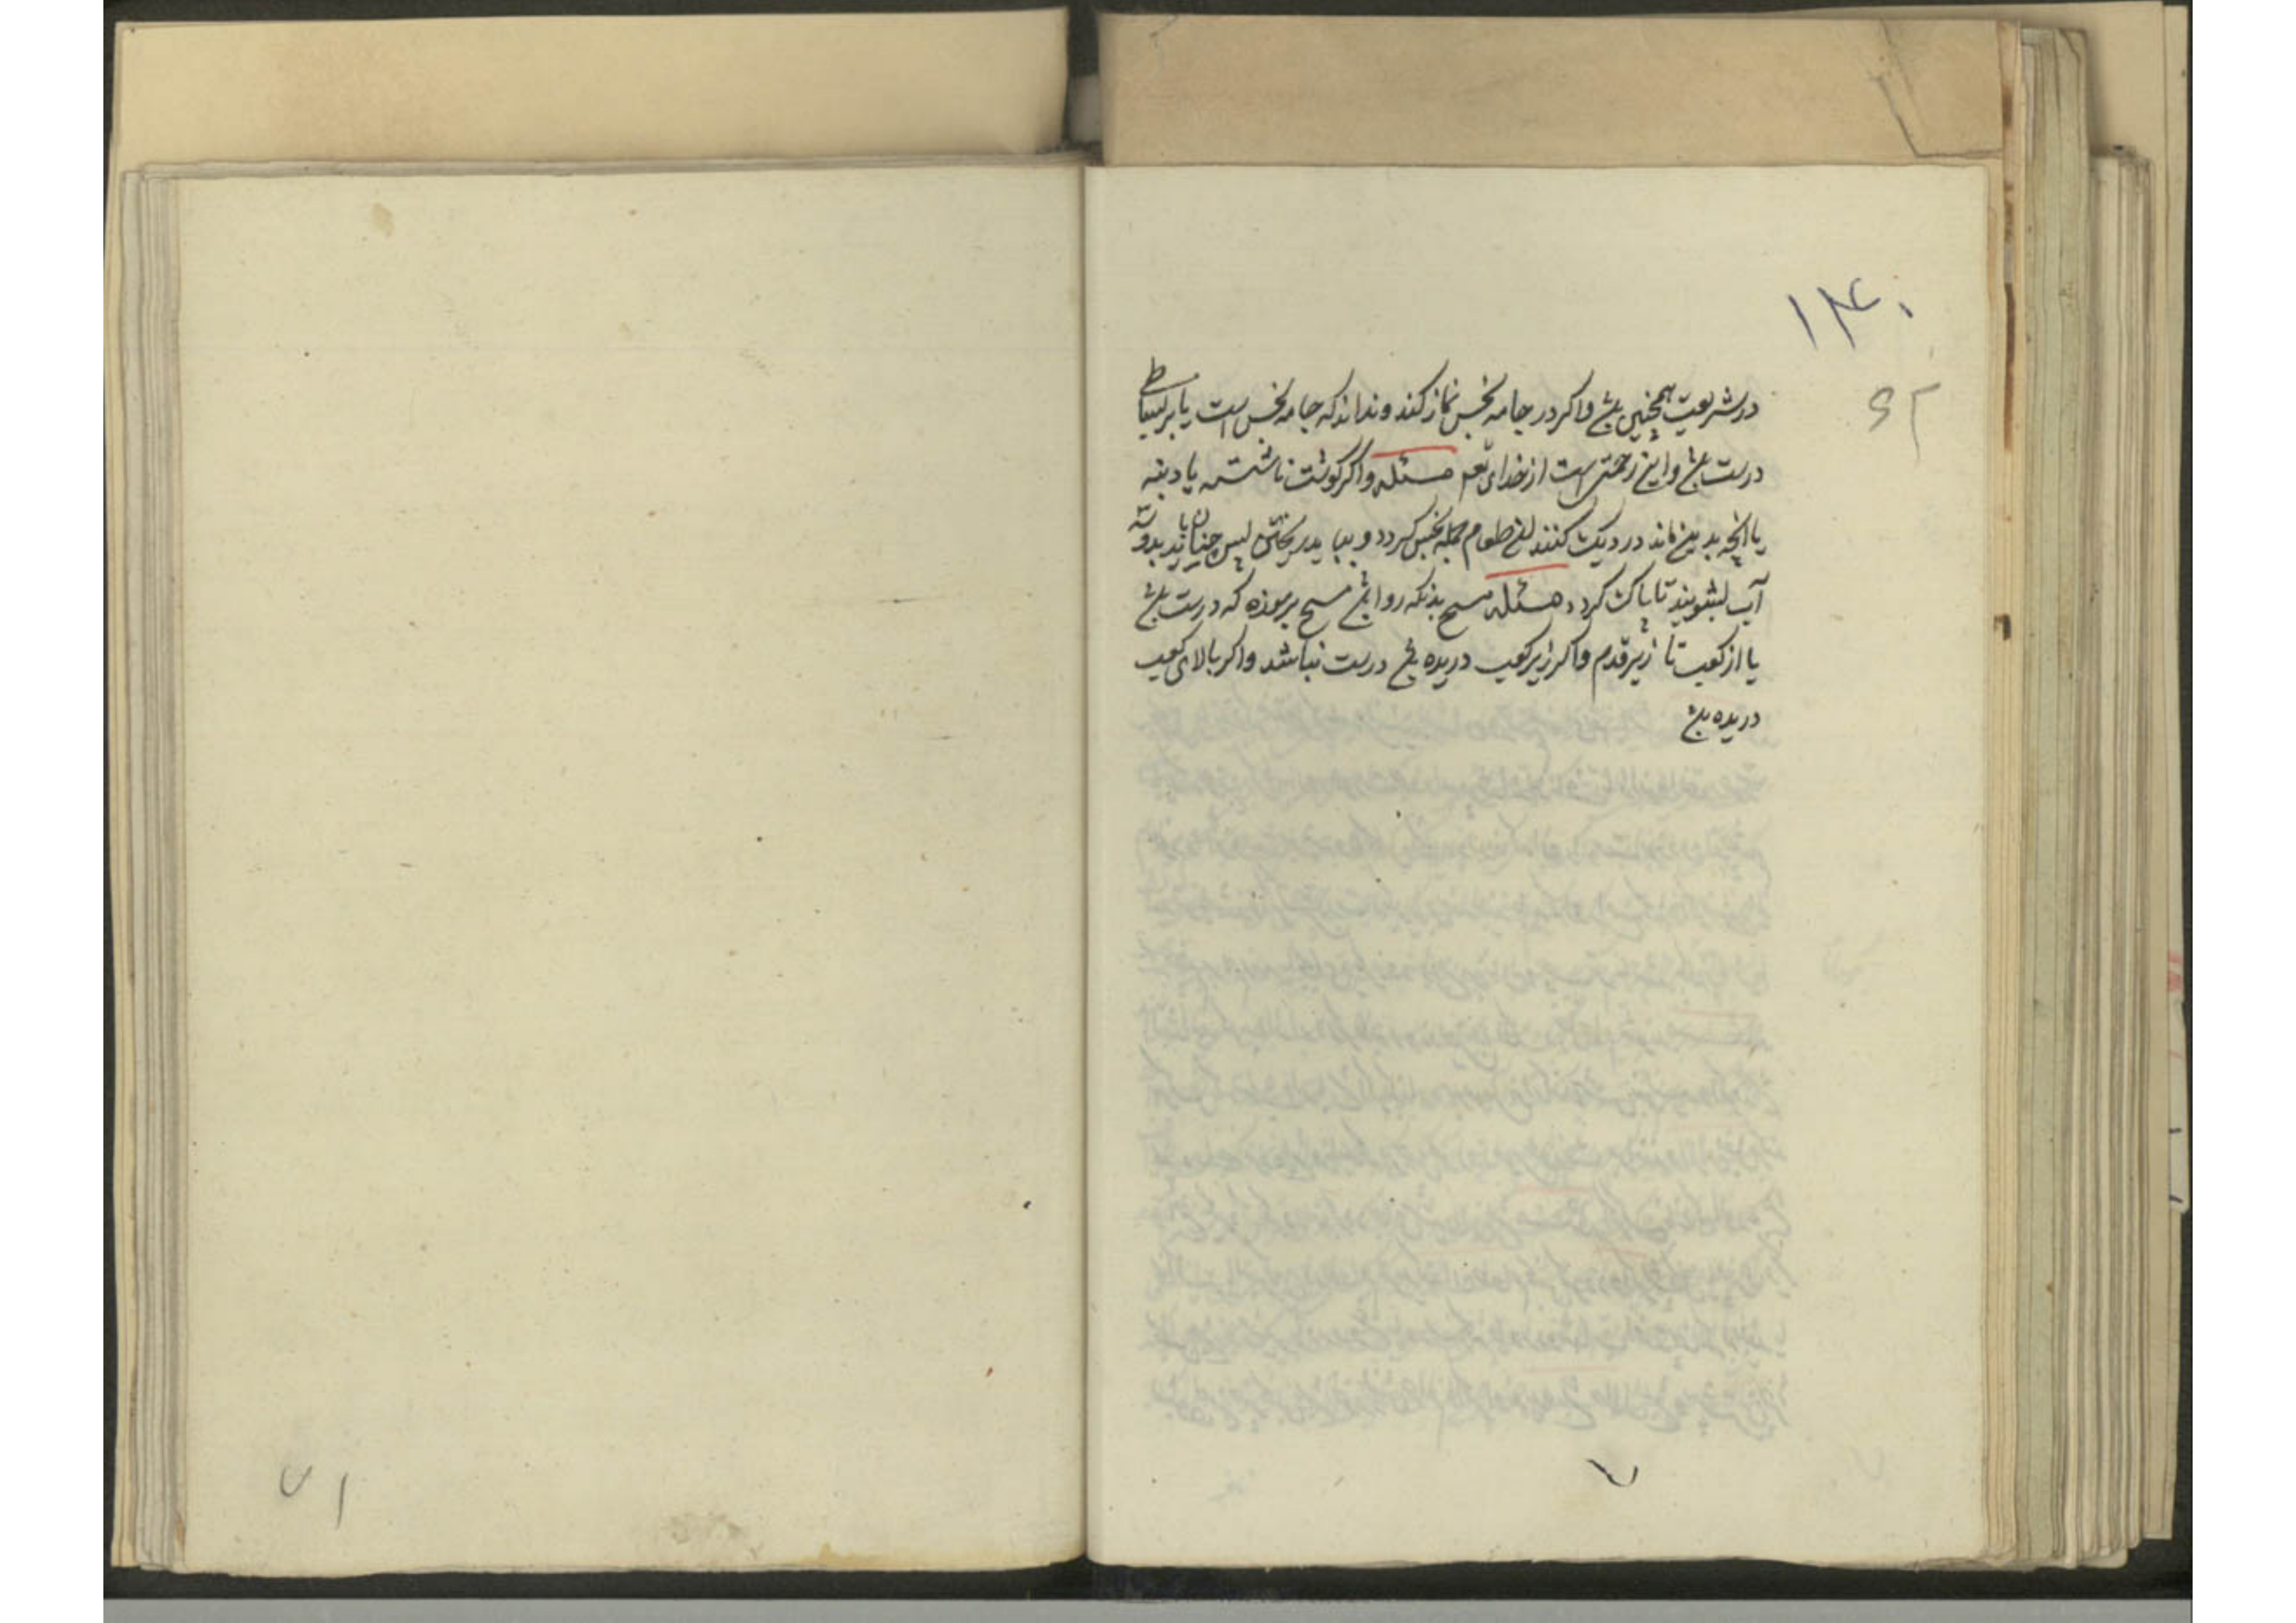 ۱۳۰
در شریعت همچنین باشد و اکر در جامه نجس نماز کند و نداند که جامه نجس است یا بر بساطی
درست باشد و این رحمتی است از خدای تعم مسئله و اکر کوشت ناشسته یا دنبه
یا آنچه بدین ماند در دیک کنند طعام جمله نجس کردد و بباید ریختن پس چنان باید بدو سه
آب بشویند تا پاک کردد مسئله مسح بدنکه روا باشد مسح بر موزه که درست باشد
یا از کعب تا زیر قدم و اکر زیر کعب دریده باشد درست نباشد و اکر بالای کعب
دریده باشد
۷
۷۱